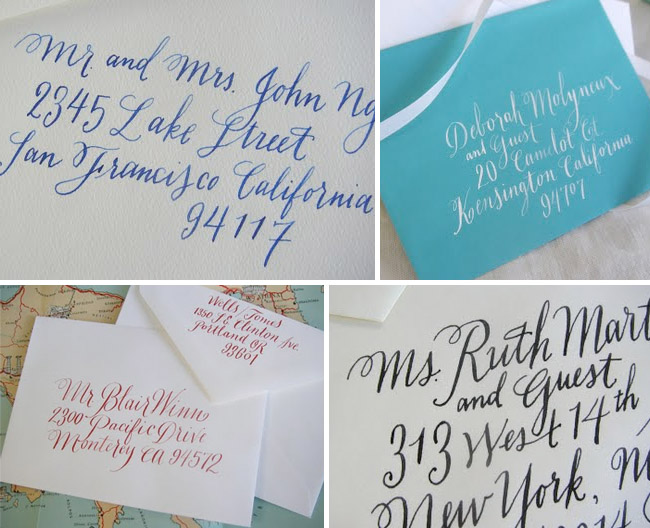 Mr. and Mrs. John Ng
2345 Lake Street
San Francisco California
94117
Deborah Molyneux
and Guest
20 Camelot Ct
Kensington California
94707
Wells/Tomes
Clinton Ave
Portland OR
Mr Blair Winn
2300 Pacific Drive
Monterey CA 94572
Ms. Ruth Mart
and Guest
313 West 14th
New York, N